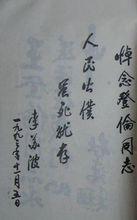 悼念登倫同志
人民公僕
虽死犹存
李苏波
一九九三年十一月五日